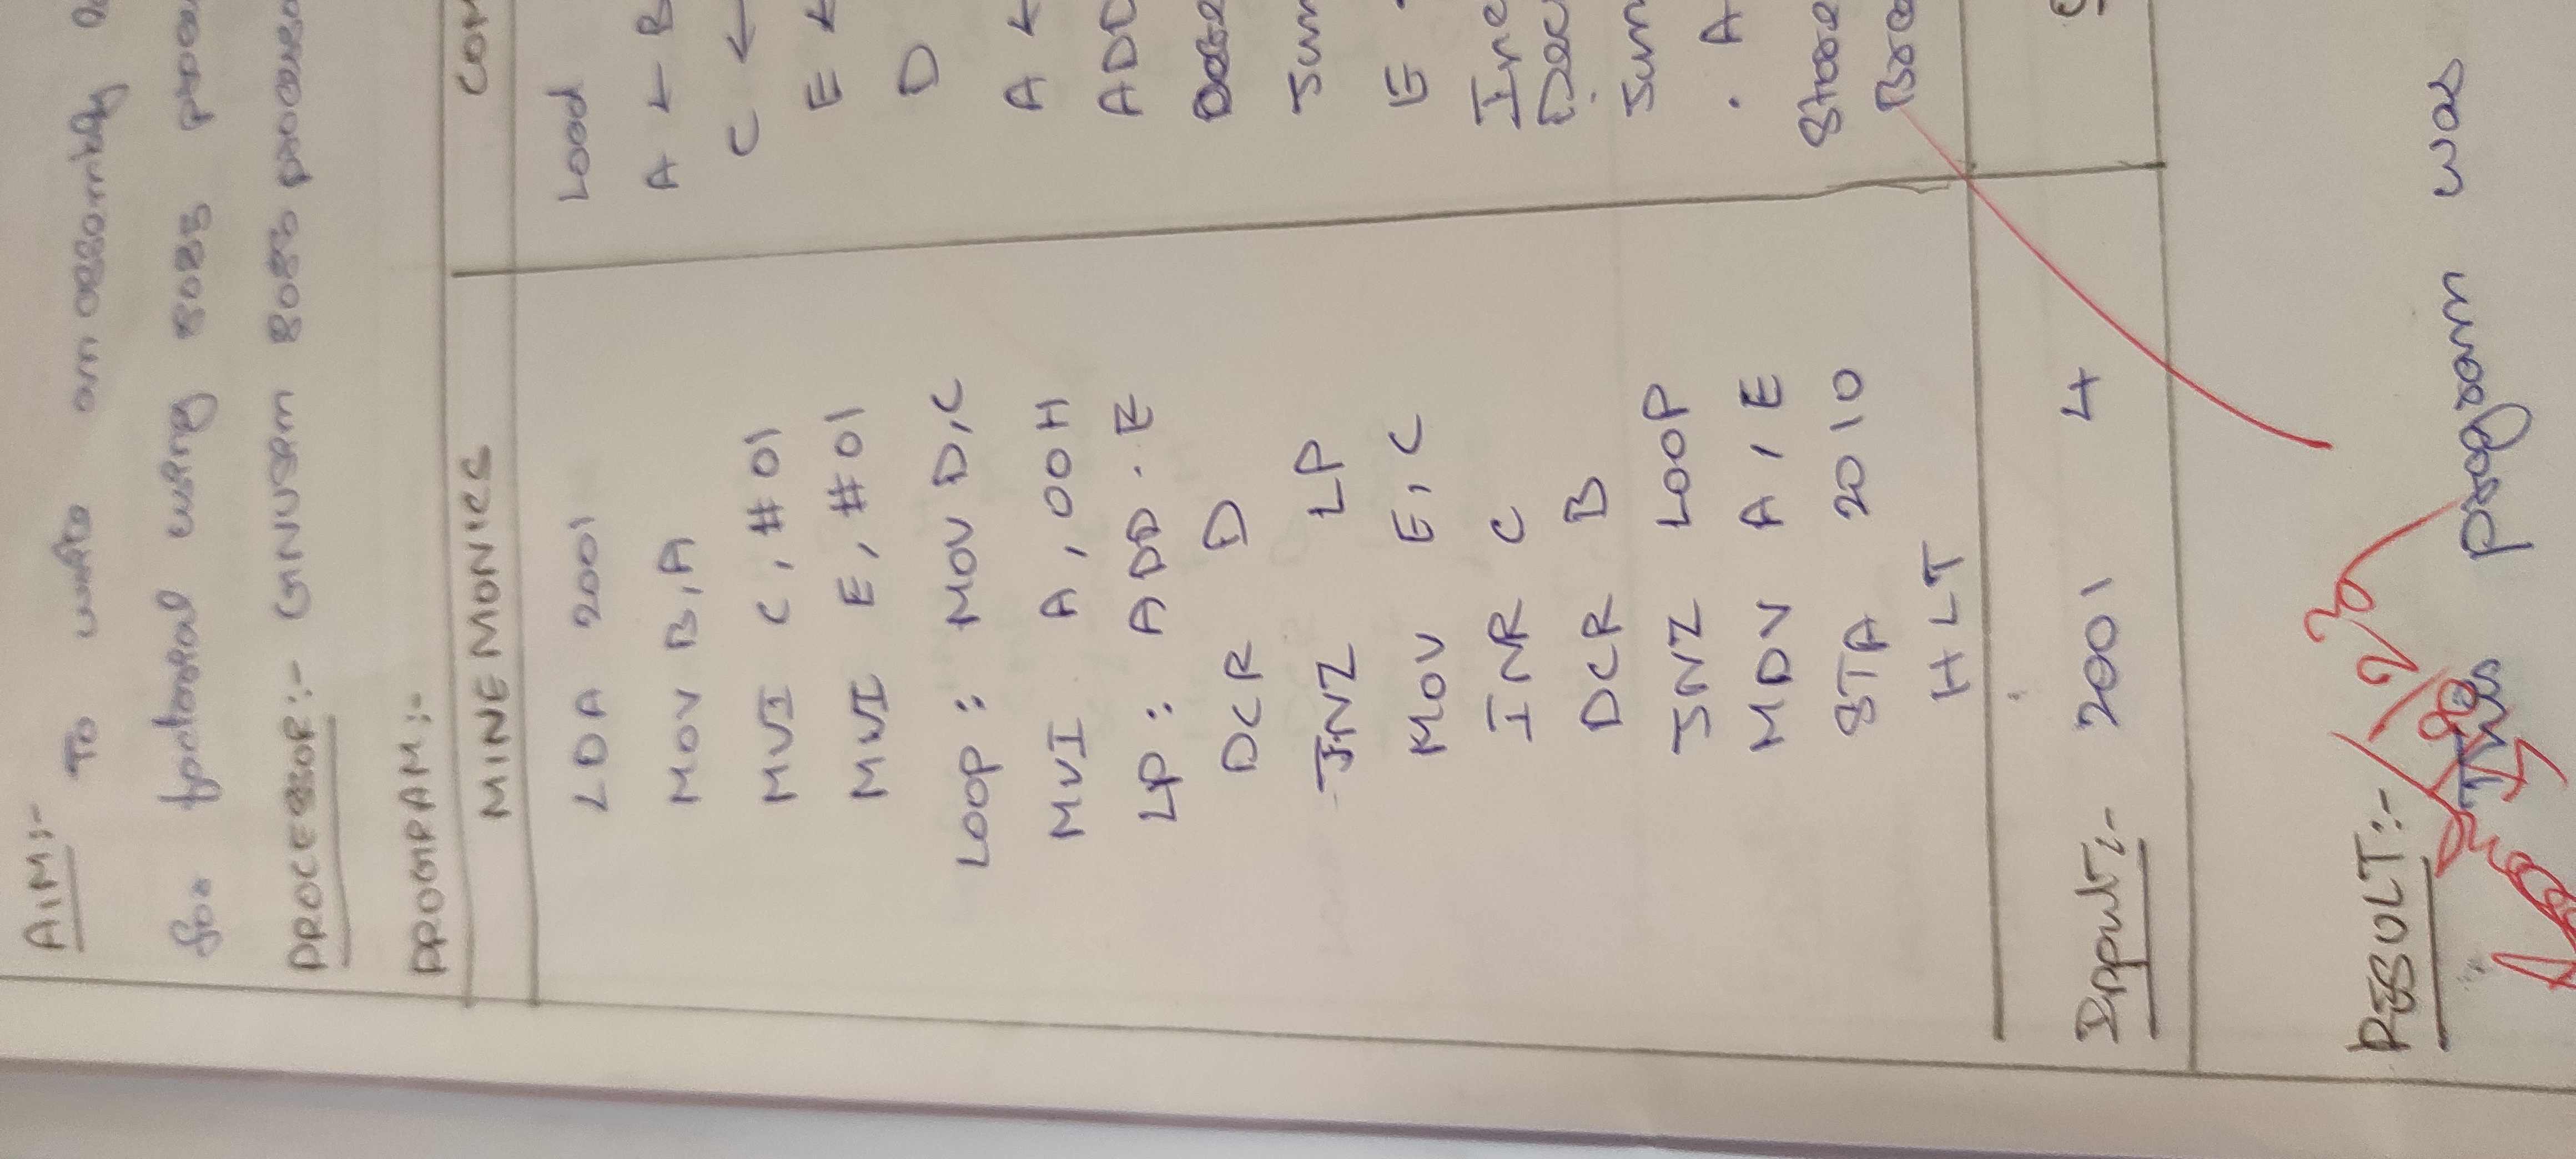 AIM:-
To write an assembly
for factorial using 8085
PROCESSOR:- GNUSim 8085
PROGRAM:-
MINEMONICS COM
LDA 2001 Load
MOV B,A A ← B
MVI C, #01 C ←
MVI E, #01 E ←
LOOP : MOV D,C D
MVI A, 00H A ←
LP : ADD . E ADD
DCR D
JNZ LP Jum
MOV E, C E
INR C Inc
DCR B Dec
JNZ LOOP Jum
MOV A, E . A
STA 2010 Store
HLT Brea
Input:- 2001 4
RESULT:-
This program was